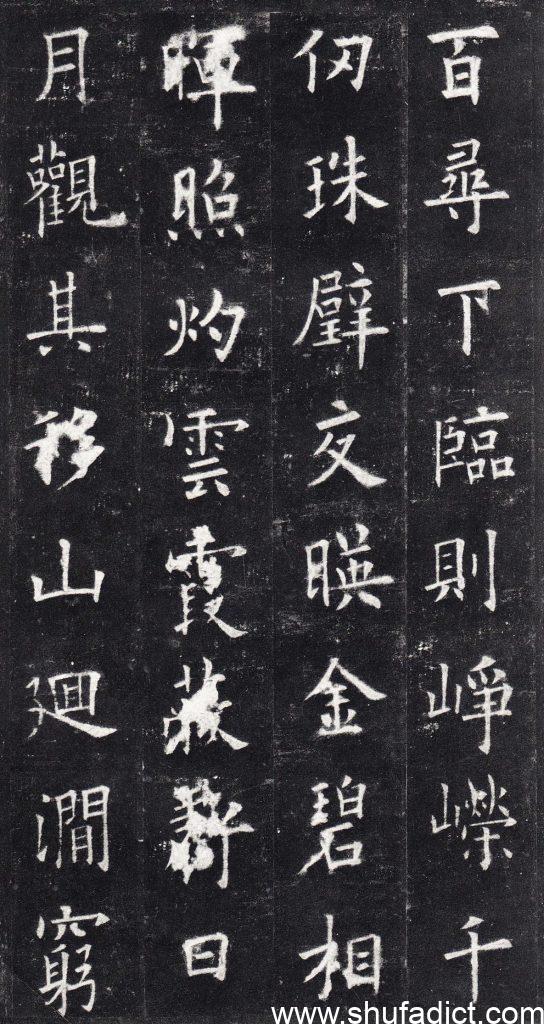 百尋下臨則崢嶸千
仞珠壁交暎金碧相
暉照灼雲霞蔽虧日
月觀其移山廻澗窮
www.shufadict.com